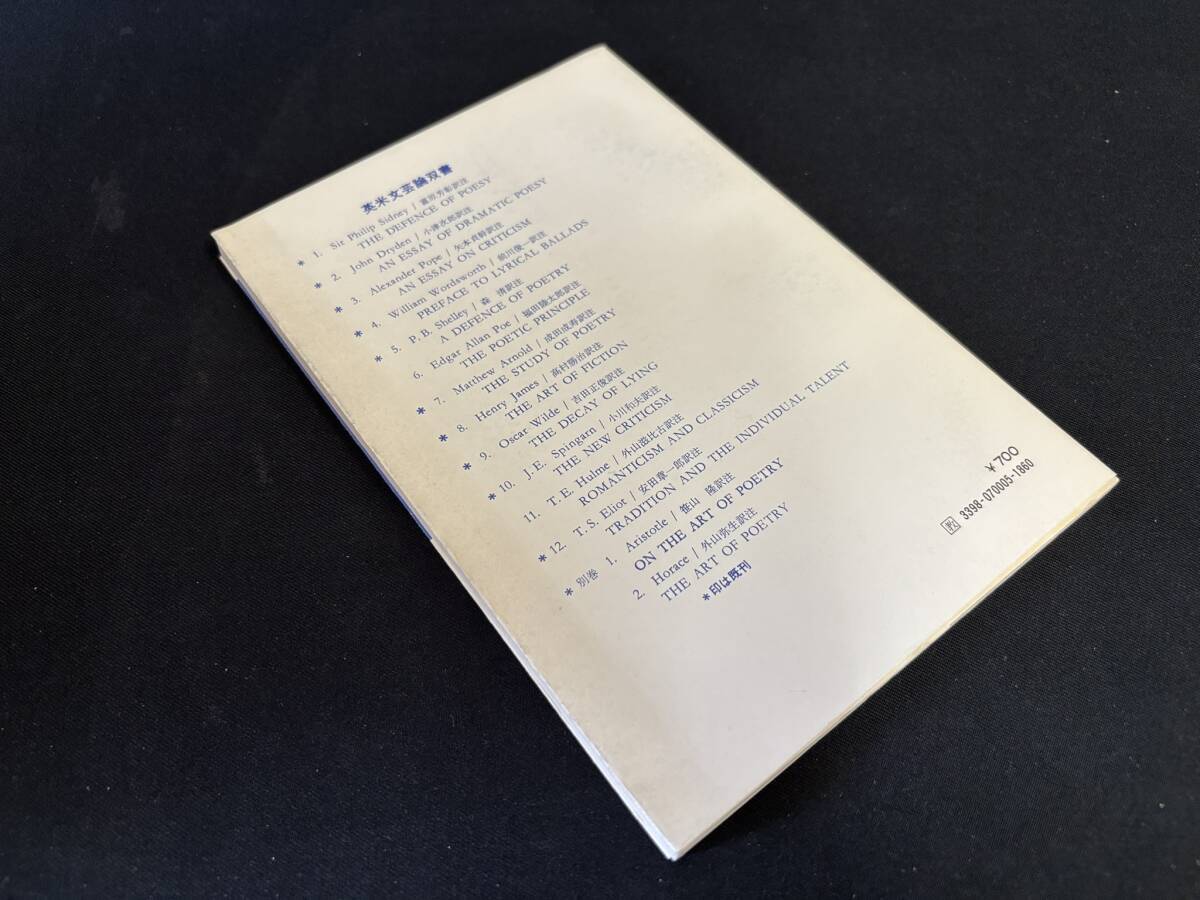 英米文芸論双書
* 1. Sir Philip Sidney / 富原芳彰訳注
THE DEFENCE OF POESY
* 2. John Dryden / 小津次郎訳注
AN ESSAY OF DRAMATIC POESY
* 3. Alexander Pope / 矢本貞幹訳注
AN ESSAY ON CRITICISM
* 4. William Wordsworth / 前川俊一訳注
PREFACE TO LYRICAL BALLADS
* 5. P. B. Shelley / 森 清訳注
A DEFENCE OF POETRY
6. Edgar Allan Poe / 福田陸太郎訳注
THE POETIC PRINCIPLE
* 7. Matthew Arnold / 成田成寿訳注
THE STUDY OF POETRY
* 8. Henry James / 高村勝治訳注
THE ART OF FICTION
* 9. Oscar Wilde / 吉田正俊訳注
THE DECAY OF LYING
* 10. J. E. Spingarn / 小川和夫訳注
THE NEW CRITICISM
11. T. E. Hulme / 外山滋比古訳注
ROMANTICISM AND CLASSICISM
* 12. T. S. Eliot / 安田章一郎訳注
TRADITION AND THE INDIVIDUAL TALENT
* 別巻 1. Aristotle / 笹山 隆訳注
ON THE ART OF POETRY
2. Horace / 外山弥生訳注
THE ART OF POETRY
*印は既刊
¥700
3398-070005-1860